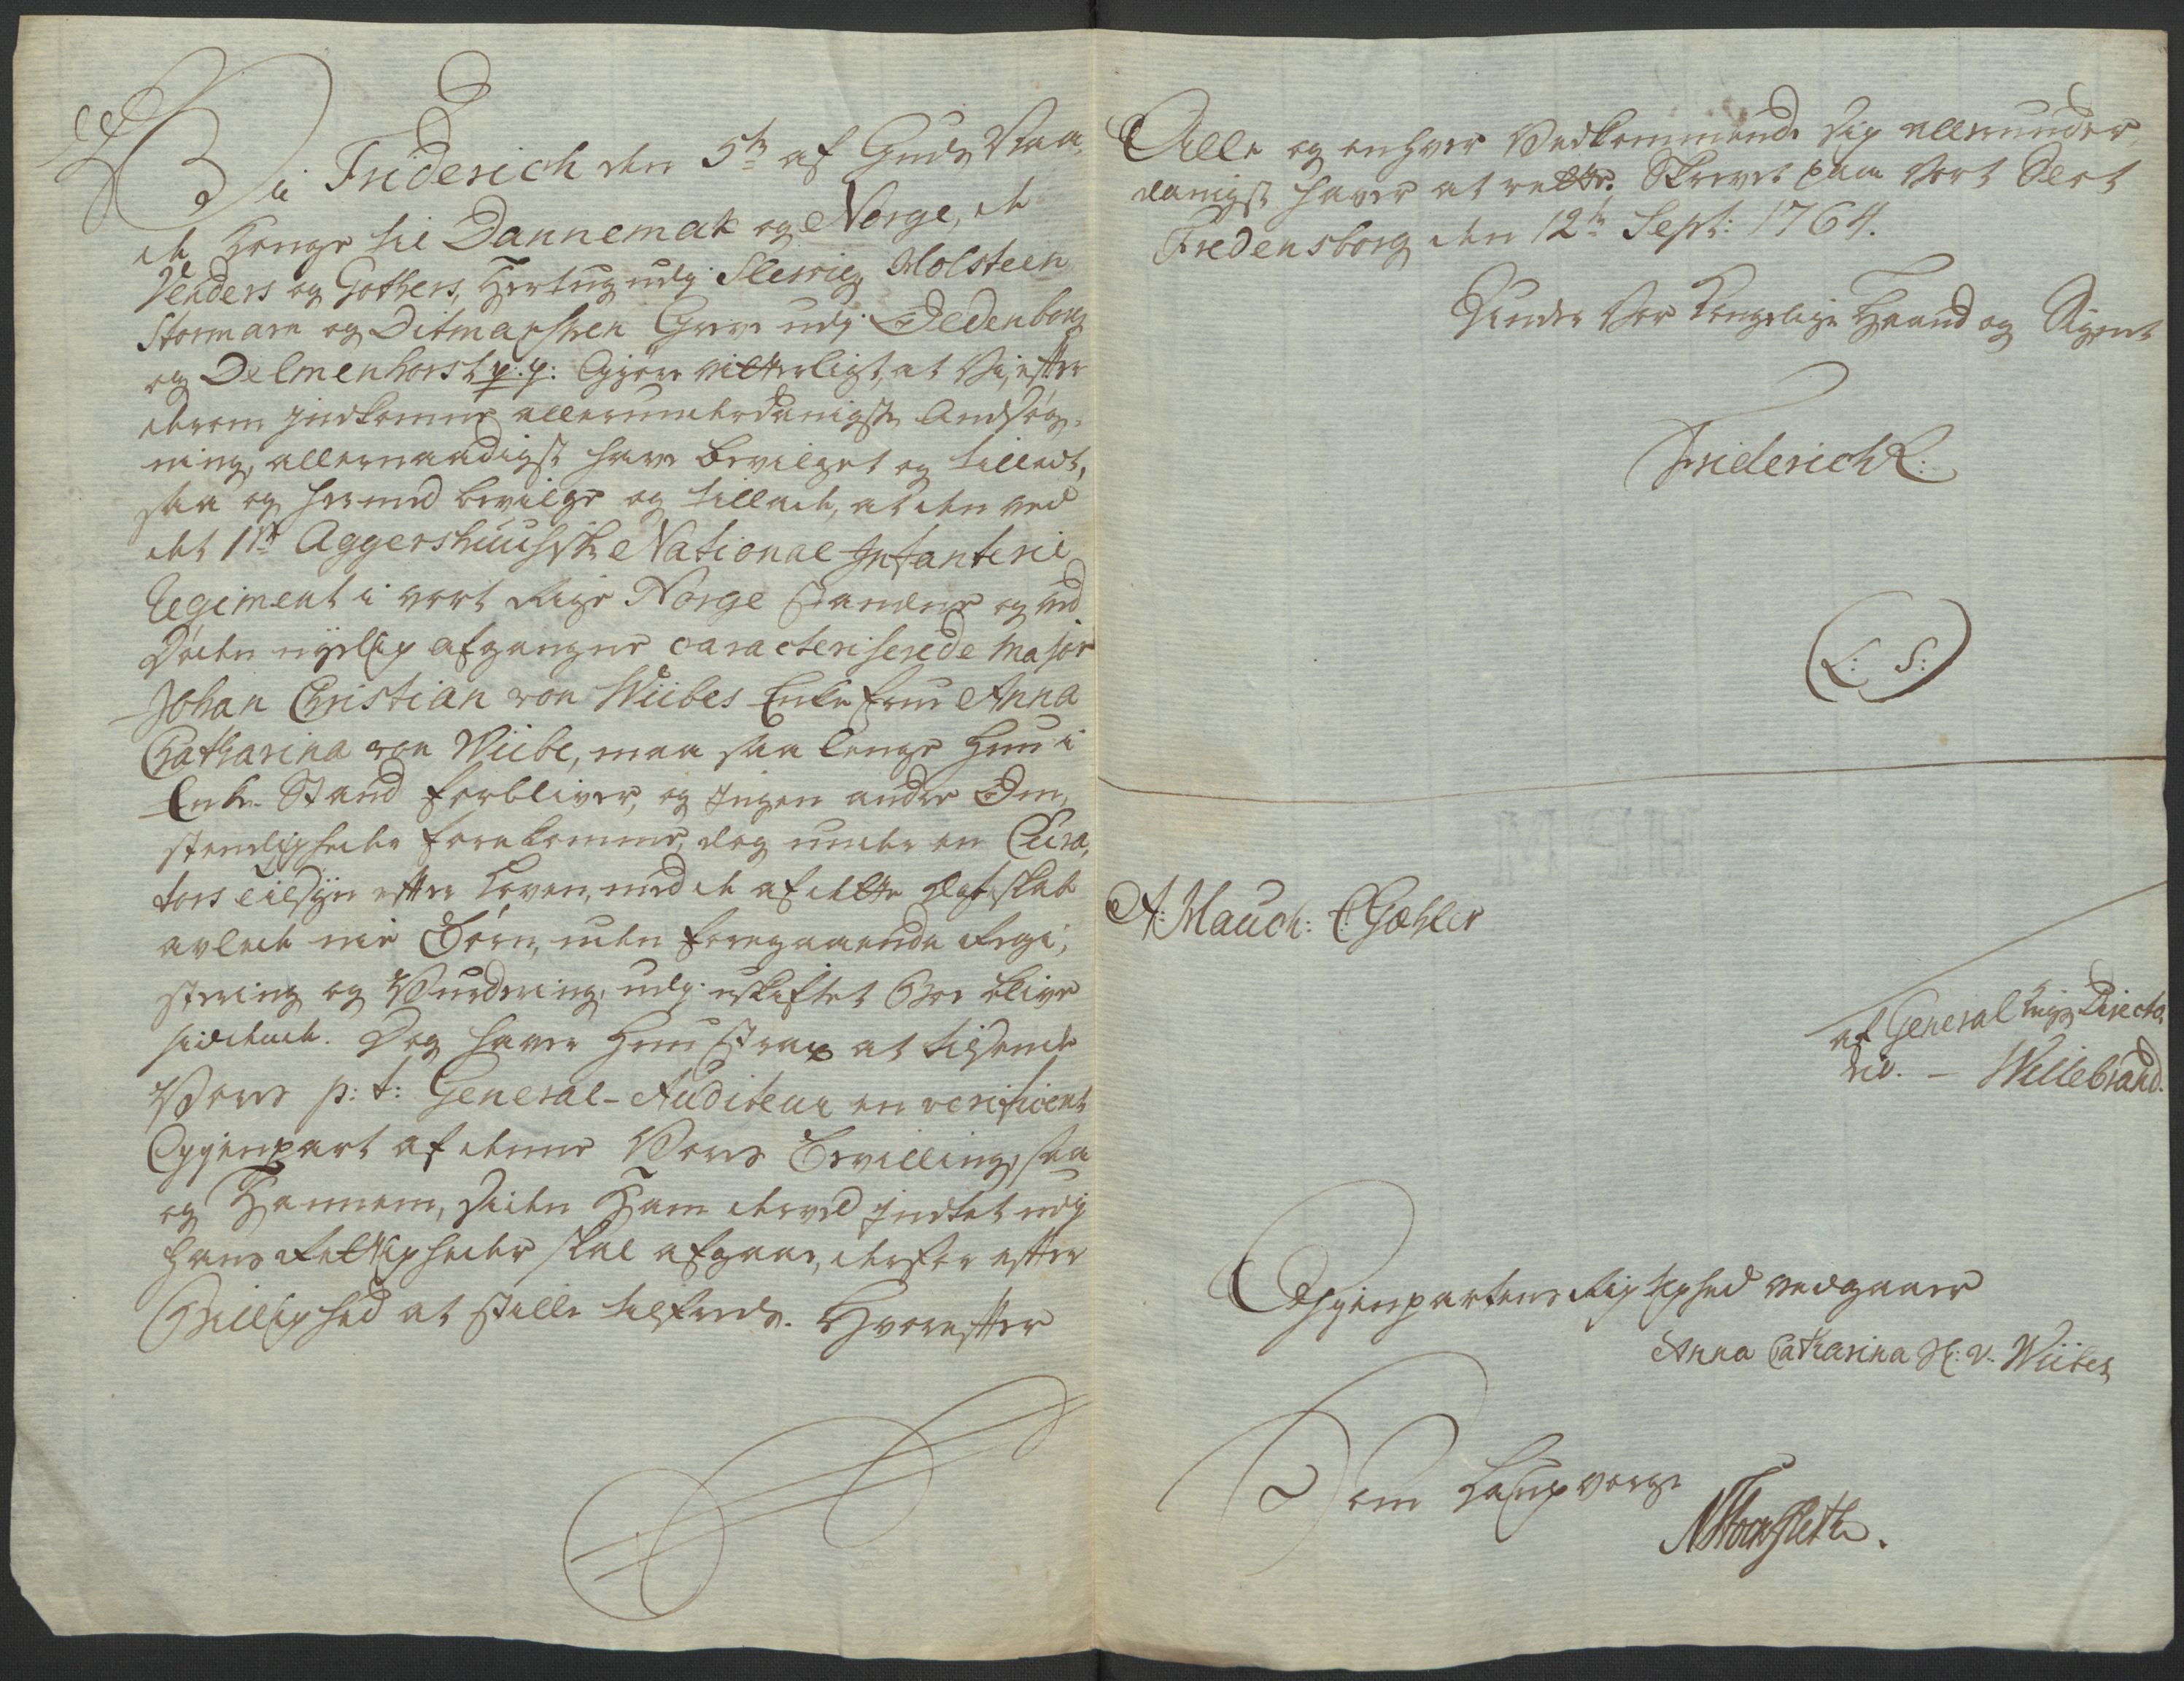 Vi Friderich den 5te af Guds Naa,
de Konge til Dannemak og Norge, de
Venders og Gothers, Hertug udj Slesvig, Holsteen
Stormarn og Ditmarsken Greve udj Oldenborg
og Delmenhorst p: p: Gjøre vitterligt, at Vi, efter
derom indkomne allerunderdanigste Ansøg-
ning, allernaadigst have bevilget og tilladt,
saa og hermed bevilge og tillade, at den ved
det 1ste Aggershuusiske National Infanterie
Regiment i vort Rige Norge standne og ved
Døden nylig afgangne caracteriserede Major
Johan Christian von Wiibes Enke Frue Anna
Catharina von Wiibe, maa saa længe Hun i
Enke-Stand forbliver, og Ingen andre Om,
stendigheder forekomme, dog under en Cura,
tors Tilsyn efter Loven, med de af dette Egteskab
avlede nie Børn, uden foregaaende Regi,
strering og Vurdering, udj uskiftet Boe blive
siddende. Dog haver Hun strax at tilsende
Vores p: t: General-Auditeur en verificeret
Gjenpart af denne Vores Bevilling, saa
og Hannem, siden Ham derved Indtet udj
hans Rettigheder skal afgaae, derfor efter
Billighed at stille tilfreds. Hvorefter
Alle og enhver Vedkommende sig allerunder,
danigst haver at rette. Skrevet paa Vort Slot
Fredensborg den 12te Sept: 1764.
Under Vor Kongelige Haand og Signet
Friderich R:
(L: S:)
A: Hauch: C: Gæhler
af General Krigs Directo,
rie. - Willebrand.
Gjenpartens Rigtighed vedgaaer
Anna Catharina H: v. Wiibes
Som Laugværge